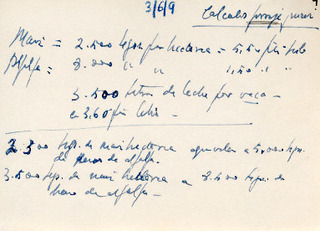 3/6/9
Calculo
Maiz = 2.500 kgs por hectarea = 5,50 pr
Alfalfa = 8.000 " " 1,50 " "
3.500 litros de leche por vaca -
a 3.60 pr litro -
2.500 kgs. de maiz hectarea equivalen a 5.000 kgs.
de heno de alfalfa.
3.500 kgs. de maiz hectarea a kgs. de
heno de alfalfa -